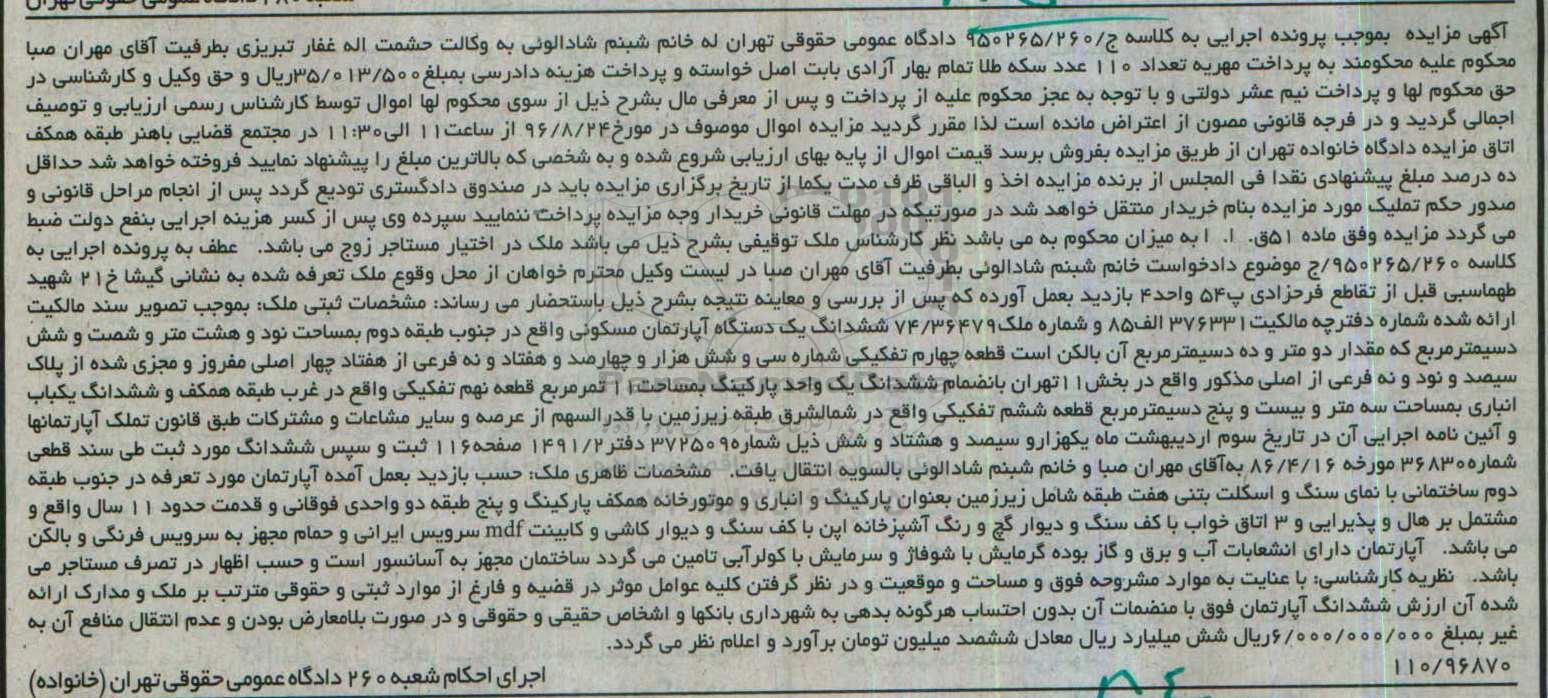 آگهی مزایده  بموجب پرونده اجرایی به کلاسه ج/۹۵۰۲۶۵/۲۶۰ دادگاه عمومی حقوقی تهران له خانم شبنم شادالوئی به وکالت حشمت اله غفار تبریزی بطرفیت آقای مهران صبا
محکوم علیه محکومند به پرداخت مهریه تعداد ۱۱۰ عدد سکه طلا تمام بهار آزادی بابت اصل خواسته و پرداخت هزینه دادرسی بمبلغ۳۵/۰۱۳/۵۰۰ریال و حق وکیل و کارشناسی در
حق محکوم لها و پرداخت نیم عشر دولتی و با توجه به عجز محکوم علیه از پرداخت و پس از معرفی مال بشرح ذیل از سوی محکوم لها اموال توسط کارشناس رسمی ارزیابی و توصیف
اجمالی گردید و در فرجه قانونی مصون از اعتراض مانده است لذا مقرر گردید مزایده اموال موصوف در مورخ۹۶/۸/۲۴ از ساعت۱۱ الی۱۱:۳۰ در مجتمع قضایی باهنر طبقه همکف
اتاق مزایده دادگاه خانواده تهران از طریق مزایده بفروش برسد قیمت اموال از پایه بهای ارزیابی شروع شده و به شخصی که بالاترین مبلغ را پیشنهاد نمایید فروخته خواهد شد حداقل
ده درصد مبلغ پیشنهادی نقدا فی المجلس از برنده مزایده اخذ و الباقی ظرف مدت یکما از تاریخ برگزاری مزایده باید در صندوق دادگستری تودیع گردد پس از انجام مراحل قانونی و
صدور حکم تملیک مورد مزایده بنام خریدار منتقل خواهد شد در صورتیکه در مهلت قانونی خریدار وجه مزایده پرداخت ننمایید سپرده وی پس از کسر هزینه اجرایی بنفع دولت ضبط
می گردد مزایده وفق ماده ۵۱ق.  ا.  ا به میزان محکوم به می باشد نظر کارشناس ملک توقیفی بشرح ذیل می باشد ملک در اختیار مستاجر زوج می باشد.   عطف به پرونده اجرایی به
کلاسه ۹۵۰۲۶۵/۲۶۰/ج موضوع دادخواست خانم شبنم شادالوئی بطرفیت آقای مهران صبا در لیست وکیل محترم خواهان از محل وقوع ملک تعرفه شده به نشانی گیشا خ۲۱ شهید
طهماسبی قبل از تقاطع فرحزادی پ۵۴ واحد۴ بازدید بعمل آورده که پس از بررسی و معاینه نتیجه بشرح ذیل باستحضار می رساند: مشخصات ثبتی ملک: بموجب تصویر سند مالکیت
ارائه شده شماره دفترچه مالکیت۳۷۶۳۳۱ الف۸۵ و شماره ملک۷۴/۳۶۴۷۹ ششدانگ یک دستگاه آپارتمان مسکونی واقع در جنوب طبقه دوم بمساحت نود و هشت متر و شصت و شش
دسیمترمربع که مقدار دو متر و ده دسیمترمربع آن بالکن است قطعه چهارم تفکیکی شماره سی و شش هزار و چهارصد و هفتاد و نه فرعی از هفتاد چهار اصلی مفروز و مجزی شده از پلاک
سیصد و نود و نه فرعی از اصلی مذکور واقع در بخش۱۱تهران بانضمام ششدانگ یک واحد پارکینگ بمساحت۱۱ تمرمربع قطعه نهم تفکیکی واقع در غرب طبقه همکف و ششدانگ یکباب
انباری بمساحت سه متر و بیست و پنج دسیمترمربع قطعه ششم تفکیکی واقع در شمالشرق طبقه زیرزمین با قدرالسهم از عرصه و سایر مشاعات و مشترکات طبق قانون تملک آپارتمانها
و آئین نامه اجرایی آن در تاریخ سوم اردیبهشت ماه یکهزارو سیصد و هشتاد و شش ذیل شماره۳۷۲۵۰۹ دفتر۱۴۹۱/۲ صفحه۱۱۶ ثبت و سپس ششدانگ مورد ثبت طی سند قطعی
شماره۳۶۸۳۰ مورخه ۸۶/۴/۱۶ به‌آقای مهران صبا و خانم شبنم شادالوئی بالسویه انتقال یافت.   مشخصات ظاهری ملک: حسب بازدید بعمل آمده آپارتمان مورد تعرفه در جنوب طبقه
دوم ساختمانی با نمای سنگ و اسکلت بتنی هفت طبقه شامل زیرزمین بعنوان پارکینگ و انباری و موتورخانه همکف پارکینگ و پنج طبقه دو واحدی فوقانی و قدمت حدود ۱۱ سال واقع و
مشتمل بر هال و پذیرایی و ۳ اتاق خواب با کف سنگ و دیوار گچ و رنگ آشپزخانه اپن با کف سنگ و دیوار کاشی و کابینت mdf سرویس ایرانی و حمام مجهز به سرویس فرنگی و بالکن
می باشد.   آپارتمان دارای انشعابات آب و برق و گاز بوده گرمایش با شوفاژ و سرمایش با کولرآبی تامین می گردد ساختمان مجهز به آسانسور است و حسب اظهار در تصرف مستاجر می
باشد.   نظریه کارشناسی: با عنایت به موارد مشروحه فوق و مساحت و موقعیت و در نظر گرفتن کلیه عوامل موثر در قضیه و فارغ از موارد ثبتی و حقوقی مترتب بر ملک و مدارک ارائه
شده آن ارزش ششدانگ آپارتمان فوق با منضمات آن بدون احتساب هرگونه بدهی به شهرداری بانکها و اشخاص حقیقی و حقوقی و در صورت بلامعارض بودن و عدم انتقال منافع آن به
غیر بمبلغ ۶/۰۰۰/۰۰۰/۰۰۰ریال شش میلیارد ریال معادل ششصد میلیون تومان برآورد و اعلام نظر می گردد.
۱۱۰/۹۶۸۷۰
اجرای احکام شعبه ۲۶۰ دادگاه عمومی حقوقی تهران (خانواده)